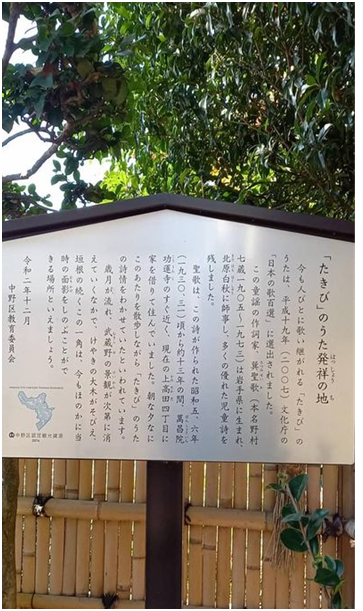 「たきび」のうた発祥の地
はっしょう　ち
今も人びとに歌い継がれる「たきび」の
うたは、平成十九年（二〇〇七）文化庁の
「日本の歌百選」に選出されました。
この童謡の作詞家・巽聖歌（本名野村
七蔵一九〇五〜一九七三）は岩手県に生まれ、
北原白秋に師事し、多くの優れた児童詩を
残しました。
聖歌は、この詩が作られた昭和五、六年
（一九三〇、三一）頃から約十三年の間、萬昌院
功運寺のすぐ近く、現在の上高田四丁目に
家を借りて住んでいました。朝な夕なに
このあたりを散歩しながら「たきび」のうた
の詩情をわかせていたといわれています。
歳月が流れ、武蔵野の景観が次第に消
えていくなかで、けやきの大木がそびえ、
垣根の続くこの一角は、今もほのかに当
時の面影をしのぶことがで
きる場所といえましょう。
令和二年十二月
中野区教育委員会
中野区認定観光資源